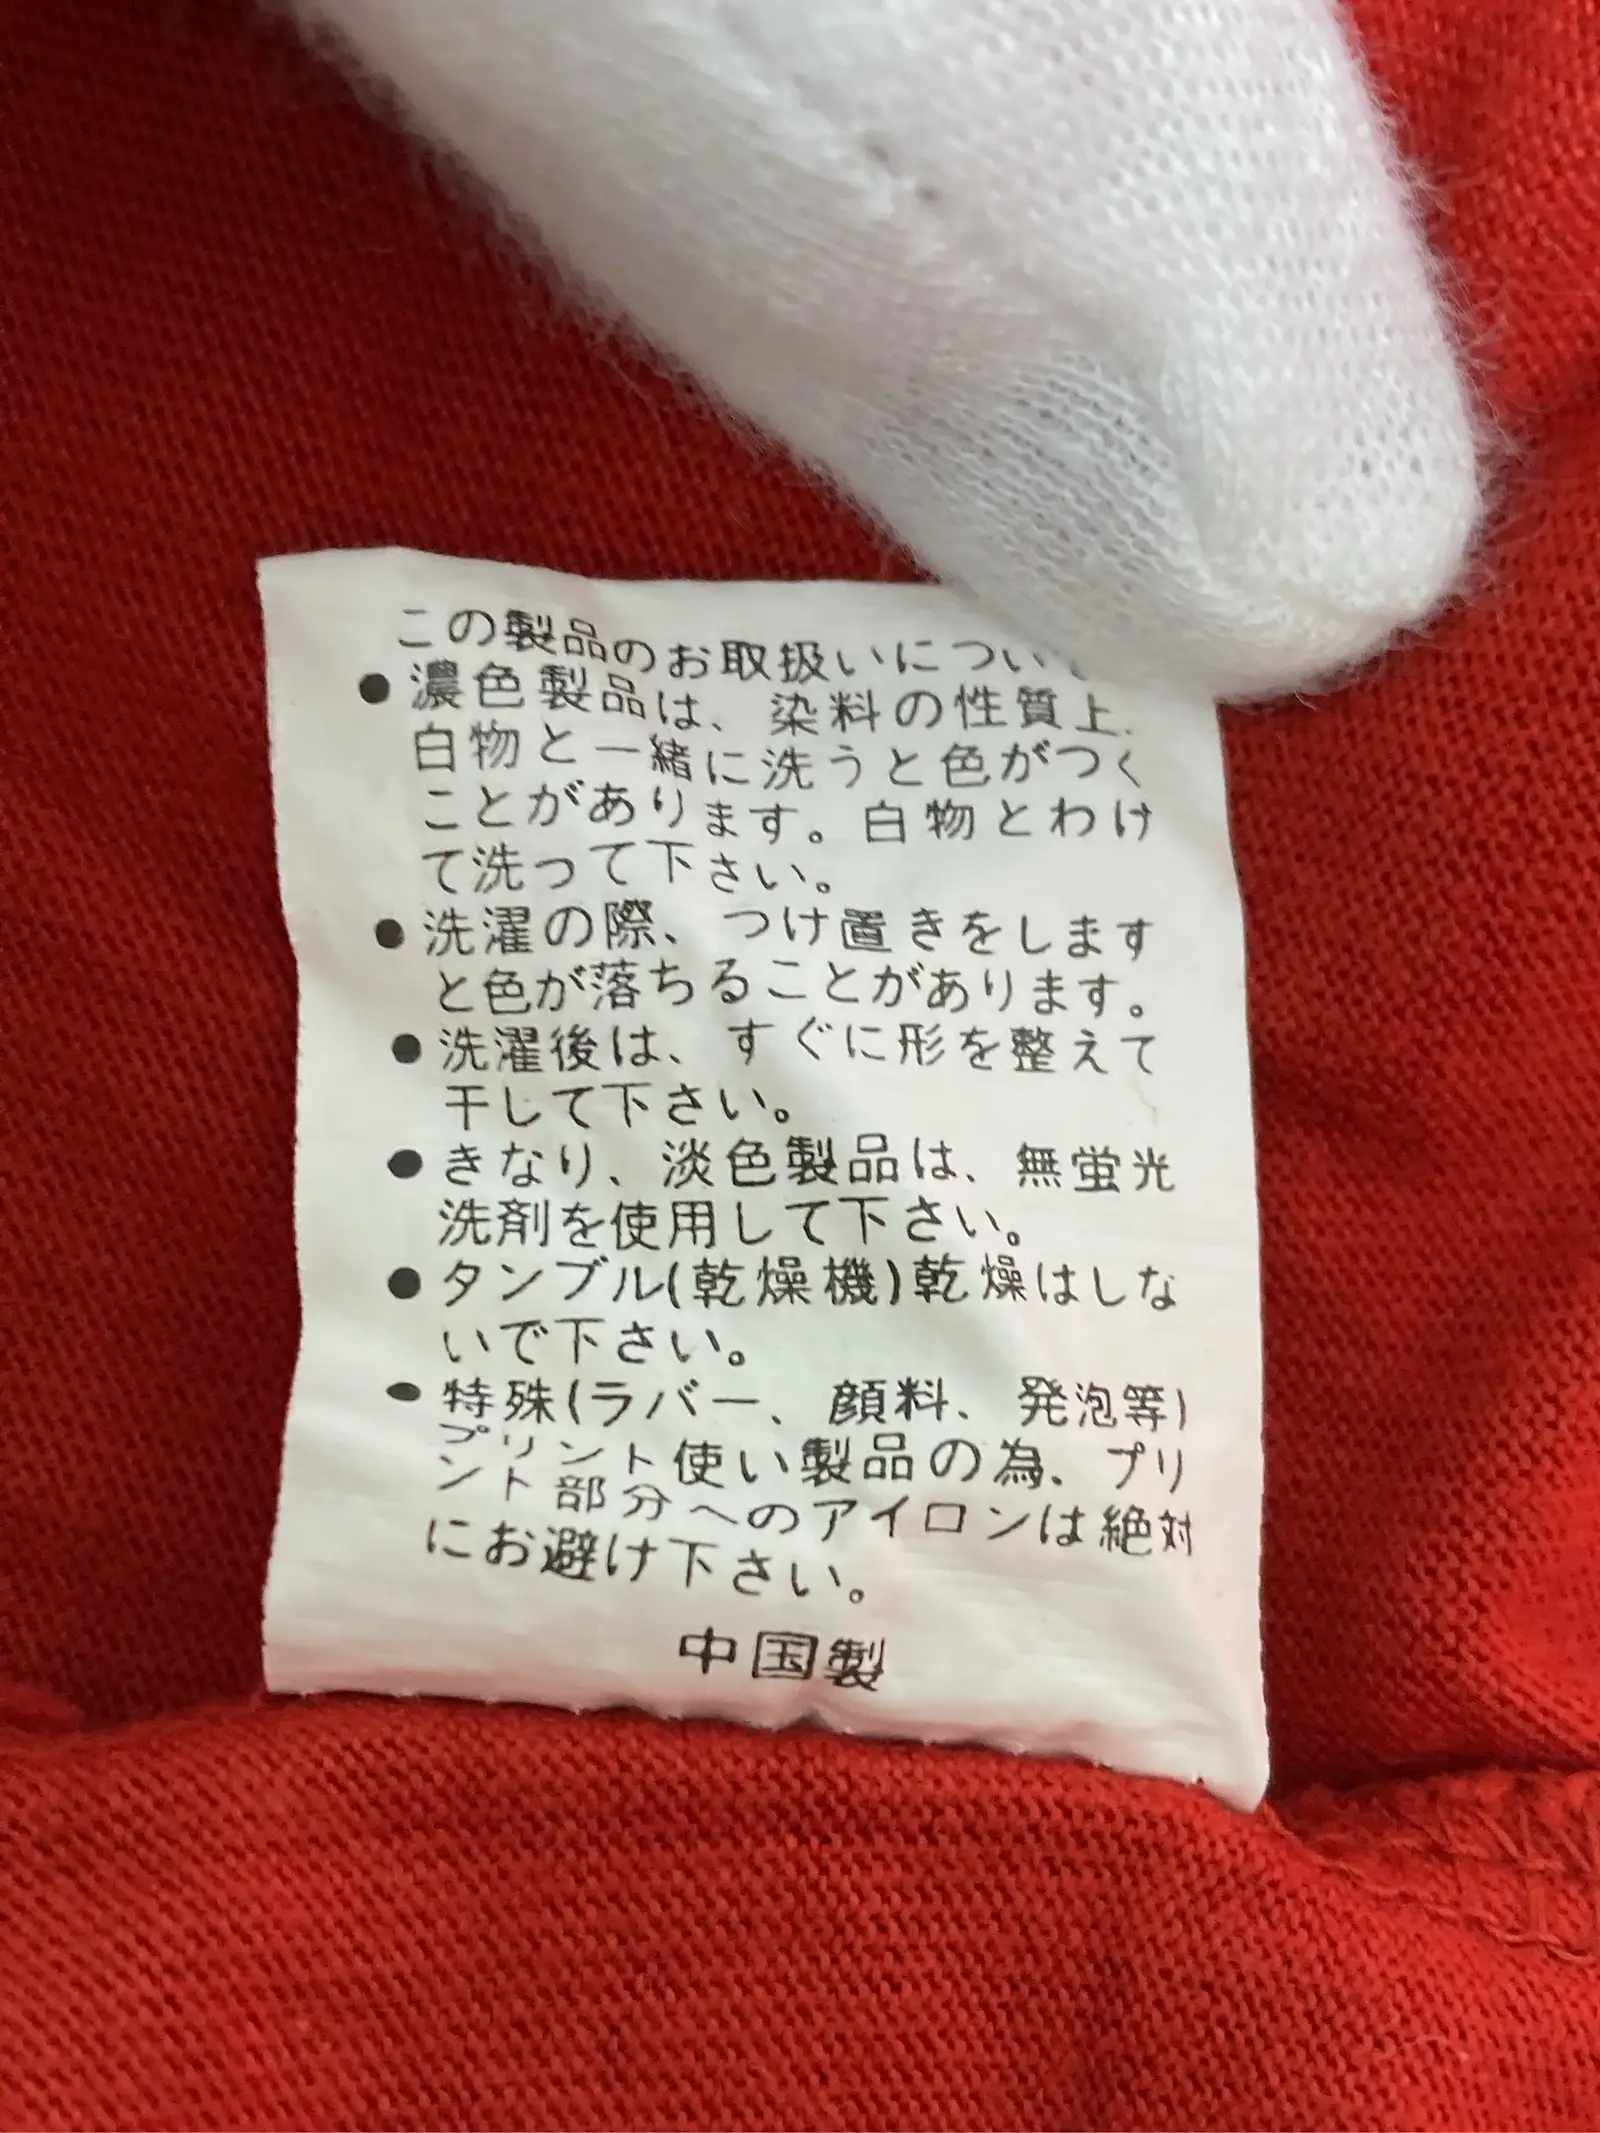 この製品のお取扱いについ
●濃色製品は、染料の性質上、
白物と一緒に洗うと色がつく
ことがあります。白物とわけ
て洗って下さい。
●洗濯の際、つけ置きをします
と色が落ちることがあります。
●洗濯後は、すぐに形を整えて
干して下さい。
●きなり、淡色製品は、無蛍光
洗剤を使用して下さい。
●タンブル(乾燥機)乾燥はしな
いで下さい。
●特殊(ラバー、顔料、発泡等)
プリント使い製品の為、プリ
ント部分へのアイロンは絶対
にお避け下さい。
中国製